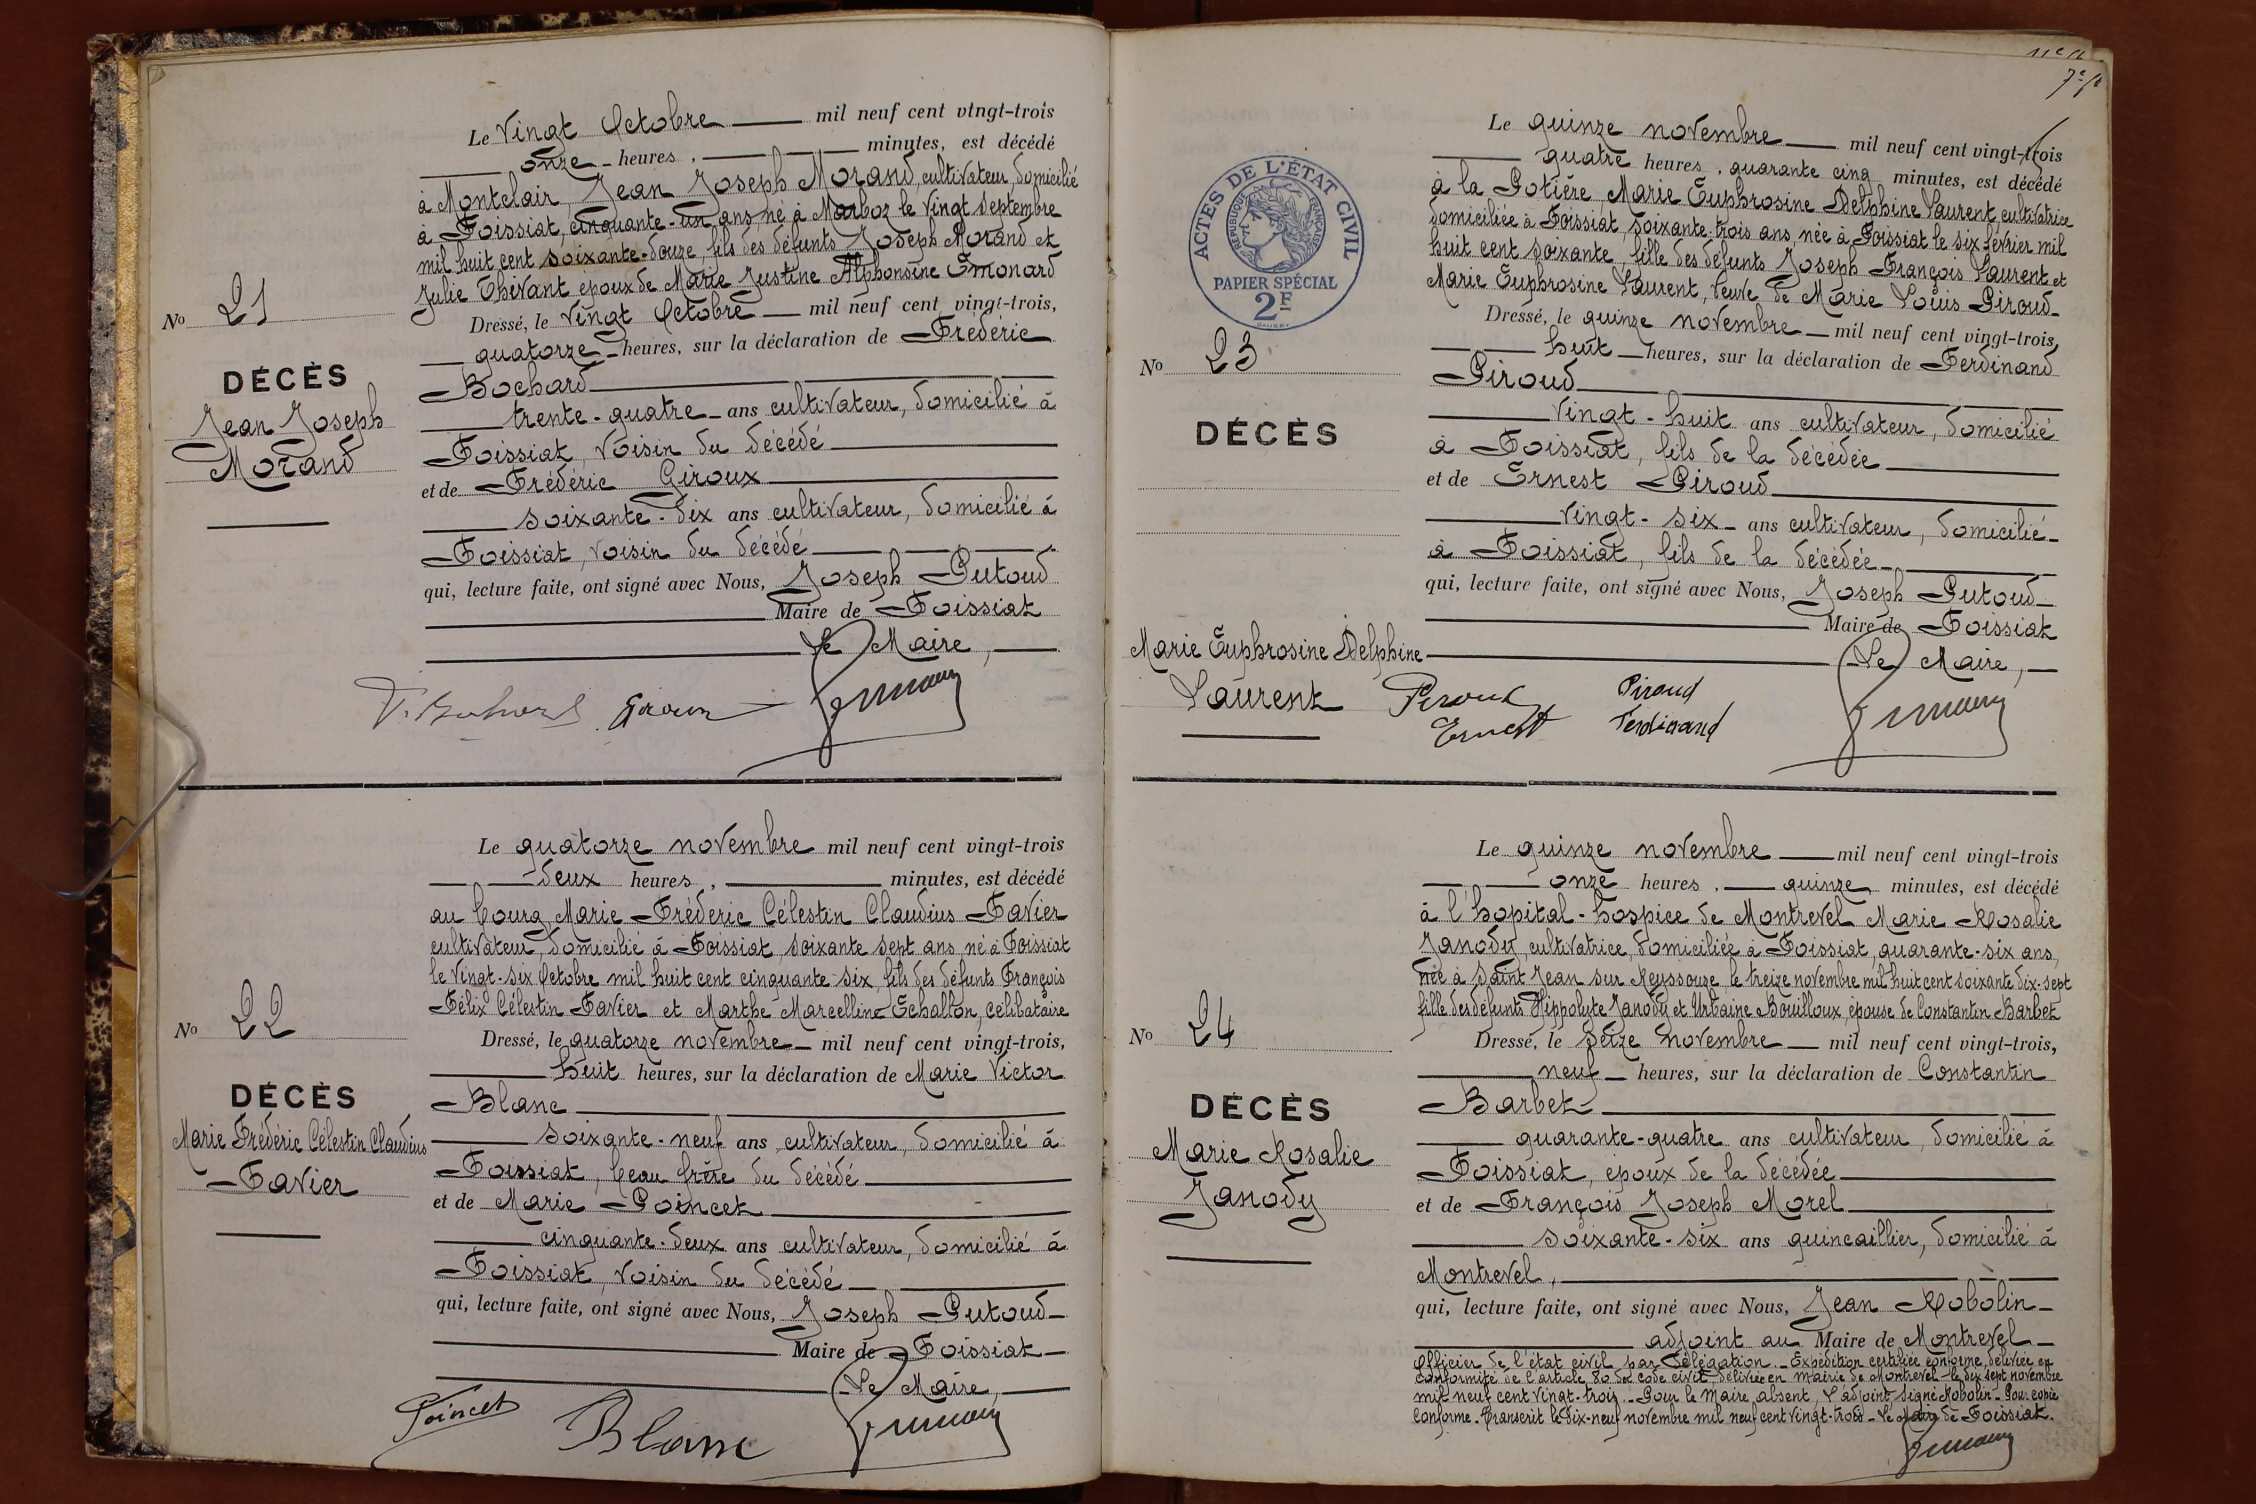 Le Vingt Octobre mil neuf cent vingt-trois
onze heures, minutes, est décédé
à Montclair, Jean Joseph Morand, cultivateur, domicilié
à Foissiat, cinquante-un ans, né à Marboz le vingt septembre
mil huit cent soixante-douze, fils des défunts Joseph Morand et
Julie Thevant époux de Marie Justine Alphonsine Emonard
Dressé, le vingt Octobre mil neuf cent vingt-trois,
quatorze heures, sur la déclaration de Frédéric
Bochard
trente-quatre ans cultivateur, domicilié à
Foissiat, voisin du décédé
et de Frédéric Giroux
soixante-dix ans cultivateur, domicilié à
Foissiat, voisin du décédé
qui, lecture faite, ont signé avec Nous, Joseph Putoud
Maire de Foissiat
Le Maire,
Giroux
No 21
DÉCÈS
Jean Joseph
Morand
Le quatorze novembre mil neuf cent vingt-trois
deux heures, minutes, est décédé
au bourg, Marie Fréderic Célestin Claudius Favier
cultivateur, domicilié à Foissiat, soixante sept ans, né à Foissiat
le vingt-six Octobre mil huit cent cinquante-six, fils des défunts François
Félix Célestin Favier et Marthe Marcelline Echallon, célibataire
Dressé, le quatorze novembre mil neuf cent vingt-trois,
huit heures, sur la déclaration de Marie Victor
Blanc
soixante-neuf ans, cultivateur, domicilié à
Foissiat, beau frère du décédé
et de Marie Poincet
cinquante-deux ans cultivateur, domicilié à
Foissiat, voisin du décédé
qui, lecture faite, ont signé avec Nous, Joseph Putoud
Maire de Foissiat
Le Maire,
Poincet Blanc
No 22
DÉCÈS
Marie Frédéric Célestin Claudius
Favier
7e
ACTES DE L'ÉTAT CIVIL
RÉPUBLIQUE FRANÇAISE
PAPIER SPÉCIAL
2F
Le quinze novembre mil neuf cent vingt-trois
quatre heures, quarante cinq minutes, est décédé
à la Potière, Marie Euphrosine Delphine Laurent, cultivatrice
domiciliée à Foissiat, soixante-trois ans, née à Foissiat le six février mil
huit cent soixante, fille des défunts Joseph François Laurent et
Marie Euphrosine Laurent, veuve de Marie Louis Piroud
Dressé, le quinze novembre mil neuf cent vingt-trois,
huit heures, sur la déclaration de Ferdinand
Piroud
vingt-huit ans cultivateur, domicilié
à Foissiat, fils de la décédée
et de Ernest Piroud
vingt-six ans cultivateur, domicilié
à Foissiat, fils de la décédée
qui, lecture faite, ont signé avec Nous, Joseph Putoud
Maire de Foissiat
Le Maire,
Piroud Ernest
Piroud Ferdinand
No 23
DÉCÈS
Marie Euphrosine Delphine
Laurent
Le quinze novembre mil neuf cent vingt-trois
onze heures, quinze minutes, est décédé
à l'hopital-hospice de Montrevel Marie Rosalie
Janody, cultivatrice, domiciliée à Foissiat, quarante-six ans,
née à Saint Jean sur Reyssouze, le treize novembre mil huit cent soixante dix-sept
fille des défunts Hippolyte Janody et Urbaine Bouilloux, épouse de Constantin Barbet
Dressé, le seize novembre mil neuf cent vingt-trois,
neuf heures, sur la déclaration de Constantin
Barbet
quarante-quatre ans cultivateur, domicilié à
Foissiat, époux de la décédée
et de François Joseph Morel
soixante-six ans quincaillier, domicilié à
Montrevel,
qui, lecture faite, ont signé avec Nous, Jean Robolin
adjoint au Maire de Montrevel
Officier de l'état civil par délégation. - Expédition certifiée conforme, délivrée en
conformité de l'article 80 du code civil, délivrée en mairie de Montrevel le dix sept novembre
mil neuf cent vingt-trois. - Pour le Maire absent, L'adjoint, signé Robolin - Pour copie
conforme. Transcrit le dix-neuf novembre mil neuf cent vingt-trois - Le Maire de Foissiat.
No 24
DÉCÈS
Marie Rosalie
Janody